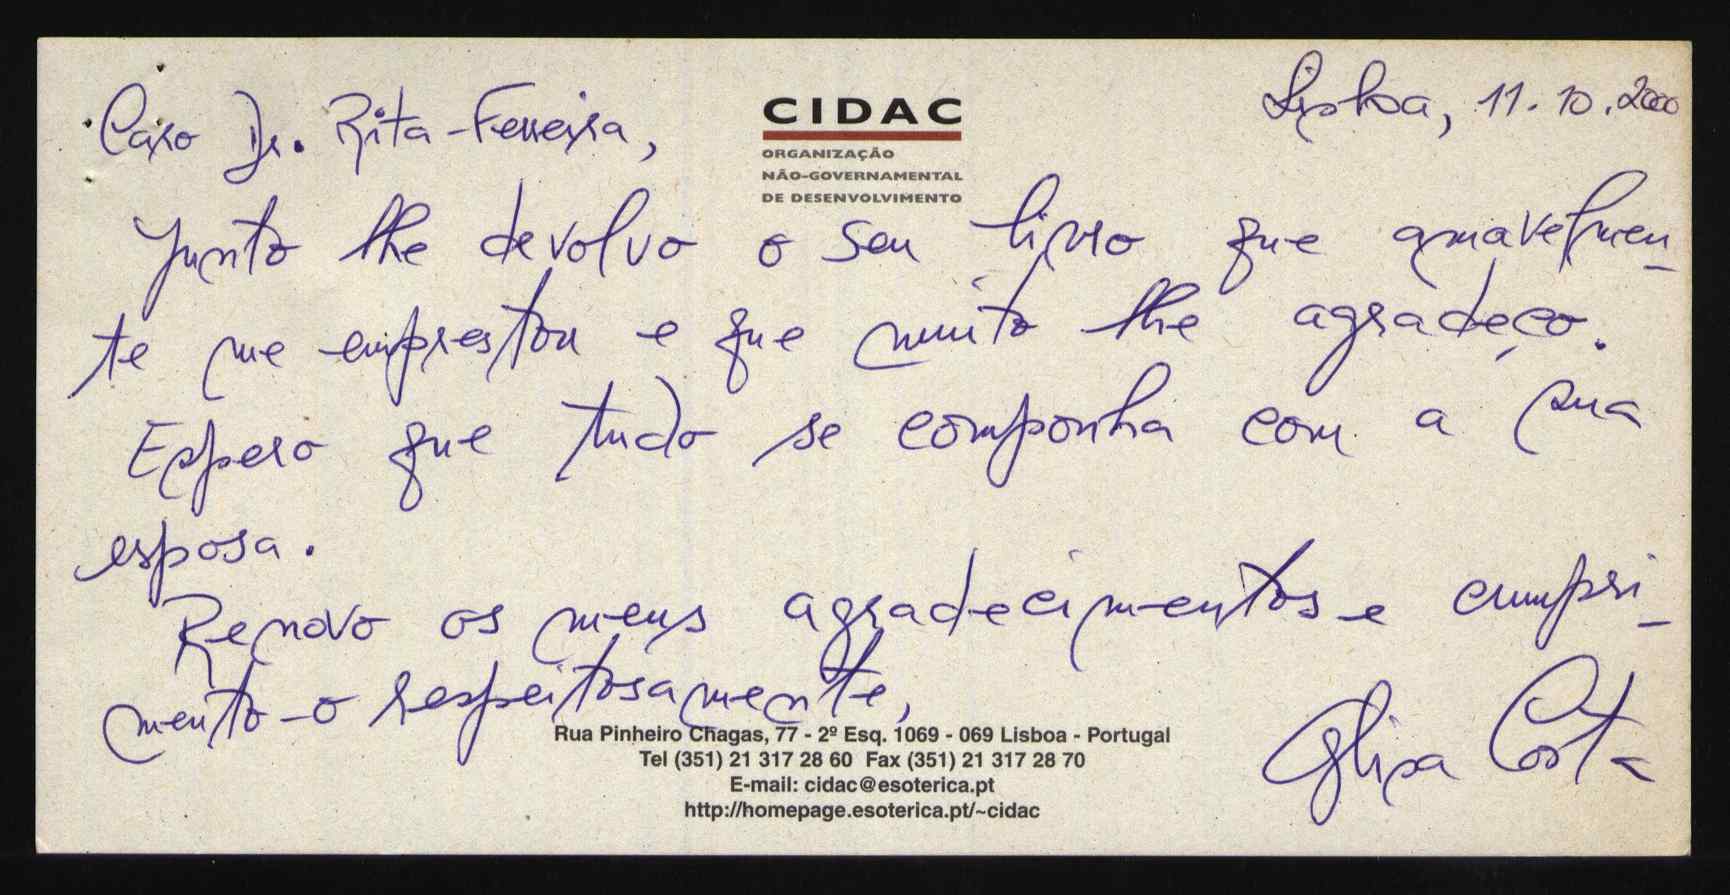 Lisboa, 11.10.2000
Caro Dr. Rita-Ferreira,
CIDAC
ORGANIZAÇÃO
NÃO-GOVERNAMENTAL
DE DESENVOLVIMENTO
Junto lhe devolvo o seu livro que amavelmen-
te me emprestou e que muito lhe agradeço.
Espero que tudo se componha com a sua
esposa.
Renovo os meus agradecimentos e cumpri-
mento-o respeitosamente,
Costa
Rua Pinheiro Chagas, 77 - 2º Esq. 1069 - 069 Lisboa - Portugal
Tel (351) 21 317 28 60 Fax (351) 21 317 28 70
E-mail: cidac@esoterica.pt
http://homepage.esoterica.pt/~cidac